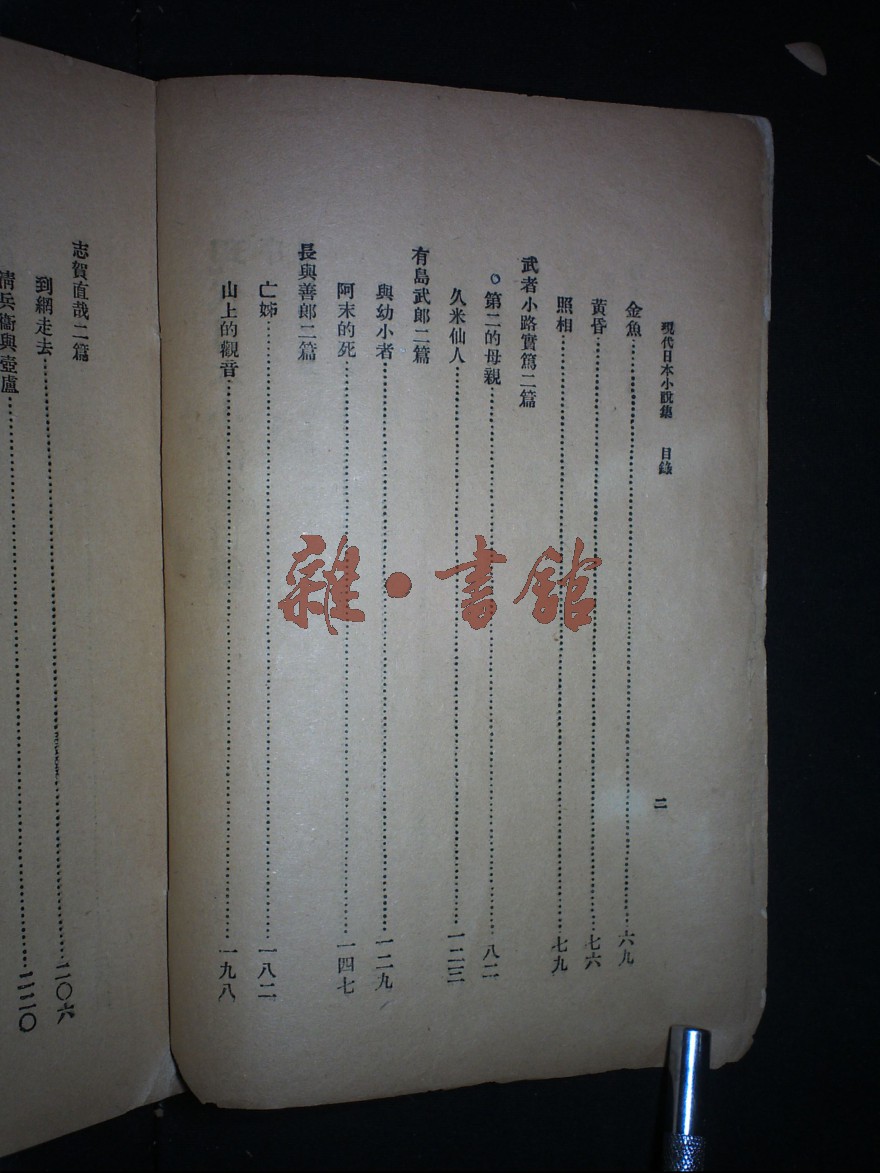 現代日本小說集 目錄
二
金魚……六九
黃昏……七六
照相……七九
武者小路實篤二篇
○第二的母親……八二
久米仙人……一二三
有島武郎二篇
與幼小者……一二九
阿末的死……一四七
長與善郎二篇
亡姊……一八二
山上的觀音……一九八
志賀直哉二篇
到網走去……二〇六
清兵衞與壺盧……二二〇
雜·書舘